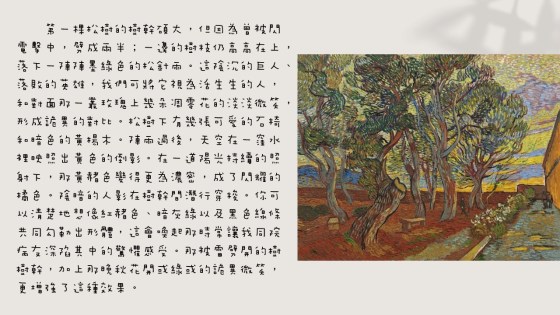 第一棵松樹的樹幹碩大，但因為曾被閃
電擊中，劈成兩半；一邊的樹枝仍高高在上，
落下一陣陣墨綠色的松針雨。這陰沉的巨人、
落敗的英雄，我們可將它視為活生生的人，
和對面那一叢玫瑰上幾朵凋零花的淡淡微笑，
形成詭異的對比。松樹下有幾張可愛的石椅
和暗色的黃楊木。陣雨過後，天空在一窪水
裡映照出黃色的倒影。在一道陽光持續的照
射下，那黃赭色變得更為濃密，成了閃耀的
橘色。陰暗的人影在樹幹間潛行穿梭。你可
以清楚地想像紅赭色、暗灰綠以及黑色線條
共同勾勒出形體，這會喚起那時常讓我同院
病友深陷其中的驚懼感受。那被雷劈開的樹
樹幹，加上那晚秋花開或綠或的詭異微笑，
更增強了這種效果。